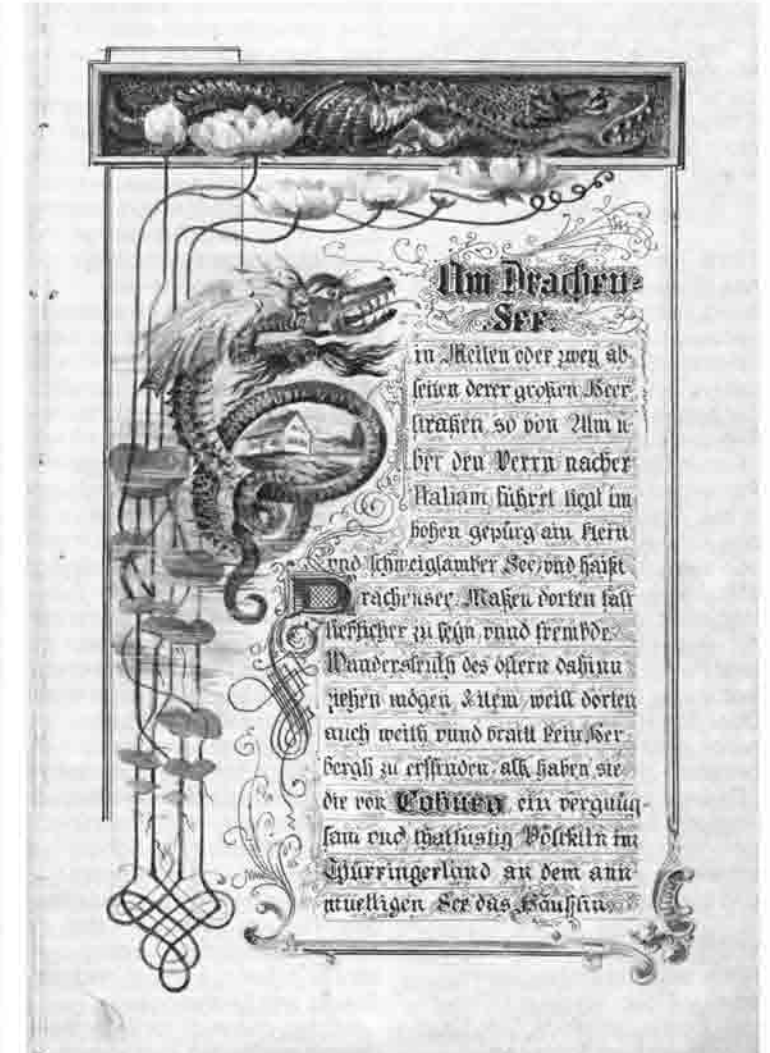 Am Drachen-
See.
in Meilen oder zwey ab-
seiten derer großen Heer
straßen, so von Ulm u-
ber den Verrn nacher
Italiam führet liegt im
hohen gepürg ain klein
und schweigsamber See, und haißt
Drachensee. Maßen dorten fast
lieblicher zu seyn, vnnd frembde
Wandersleuth des öftern dahinn
ziehen mögen, Item, weill dorten
auch weith vnnd braitt kein Her-
bergh zu erfinden, alß haben sie
die von Coburg, ein vergnüg-
sam vnd thatlustig Völcklin im
Thürringerland an dem ann-
muettigen See das Häußlin